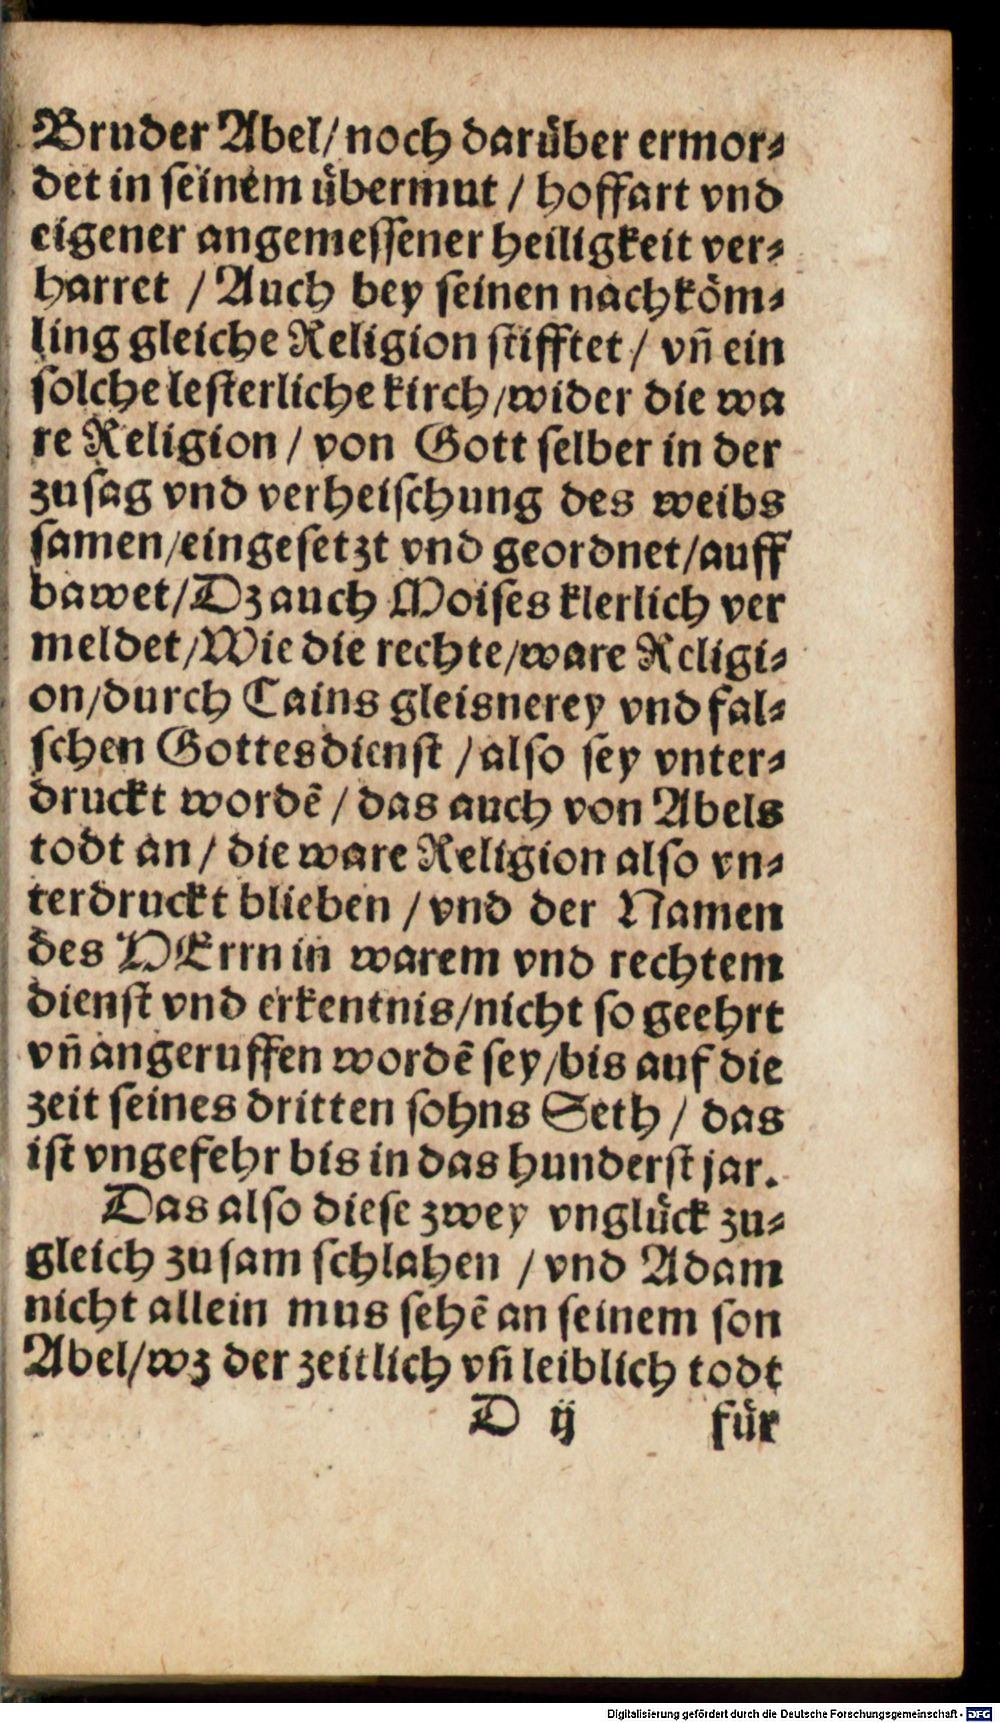 Bruder Abel/ noch darüber ermor⸗
det in seinem übermut / hoffart vnd
eigener angemessener heiligkeit ver⸗
harret / Auch bey seinen nachköm⸗
ling gleiche Religion stifftet / vñ ein
solche lesterliche kirch/wider die wa
re Religion / von Gott selber in der
zusag vnd verheischung des weibs
samen/eingesetzt vnd geordnet/auff
bawet/Dz auch Moises klerlich ver
meldet/Wie die rechte/ware Religi⸗
on/durch Cains gleisnerey vnd fal⸗
schen Gottesdienst / also sey vnter⸗
druckt wordē / das auch von Abels
todt an / die ware Religion also vn⸗
terdruckt blieben / vnd der Namen
des HErrn in warem vnd rechtem
dienst vnd erkentnis/nicht so geehrt
vñ angeruffen wordē sey/bis auf die
zeit seines dritten sohns Seth / das
ist vngefehr bis in das hunderst jar.
Das also diese zwey vnglück zu⸗
gleich zusam schlahen / vnd Adam
nicht allein mus sehē an seinem son
Abel/wz der zeitlich vñ leiblich todt
D ij für
Digitalisierung gefördert durch die Deutsche Forschungsgemeinschaft - DFG